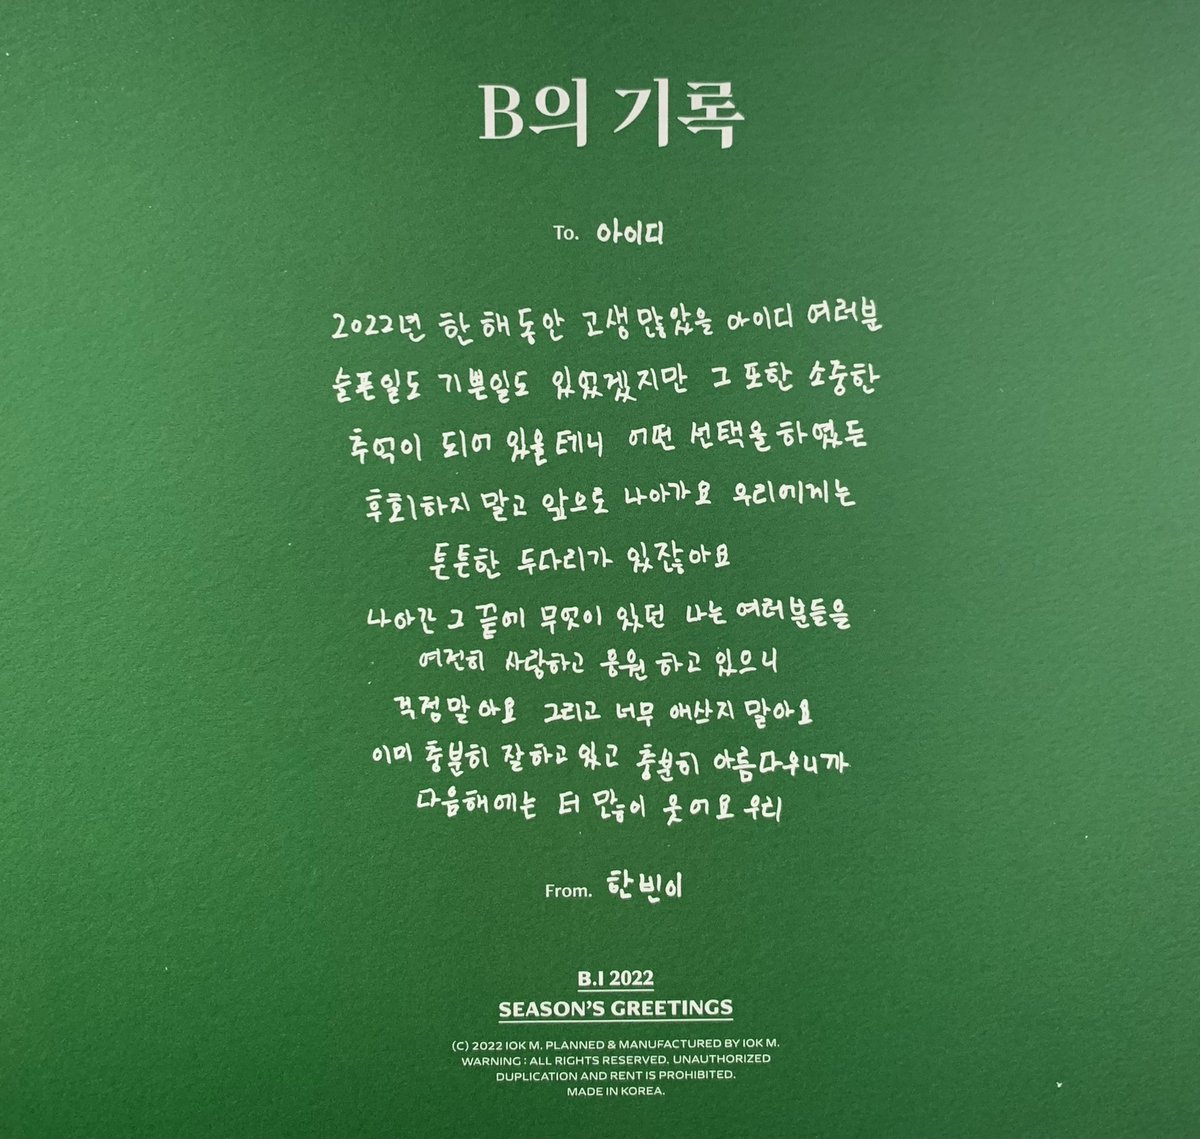 B의 기록
To. 아이디
2022년 한 해 동안 고생 많았을 아이디 여러분
슬픈일도 기쁜일도 있었겠지만 그 또한 소중한
추억이 되어 있을테니 어떤 선택을 하였든
후회하지 말고 앞으로 나아가요 우리에게는
튼튼한 두다리가 있잖아요
나아간 그 끝에 무엇이 있던 나는 여러분들을
여전히 사랑하고 응원 하고 있으니
걱정말아요 그리고 너무 애쓰지 말아요
이미 충분히 잘하고 있고 충분히 아름다우니까
다음해에는 더 많이 웃어요 우리
From. 한빈이
B.I 2022
SEASON'S GREETINGS
(C) 2022 IOK M. PLANNED & MANUFACTURED BY IOK M.
WARNING : ALL RIGHTS RESERVED. UNAUTHORIZED
DUPLICATION AND RENT IS PROHIBITED.
MADE IN KOREA.